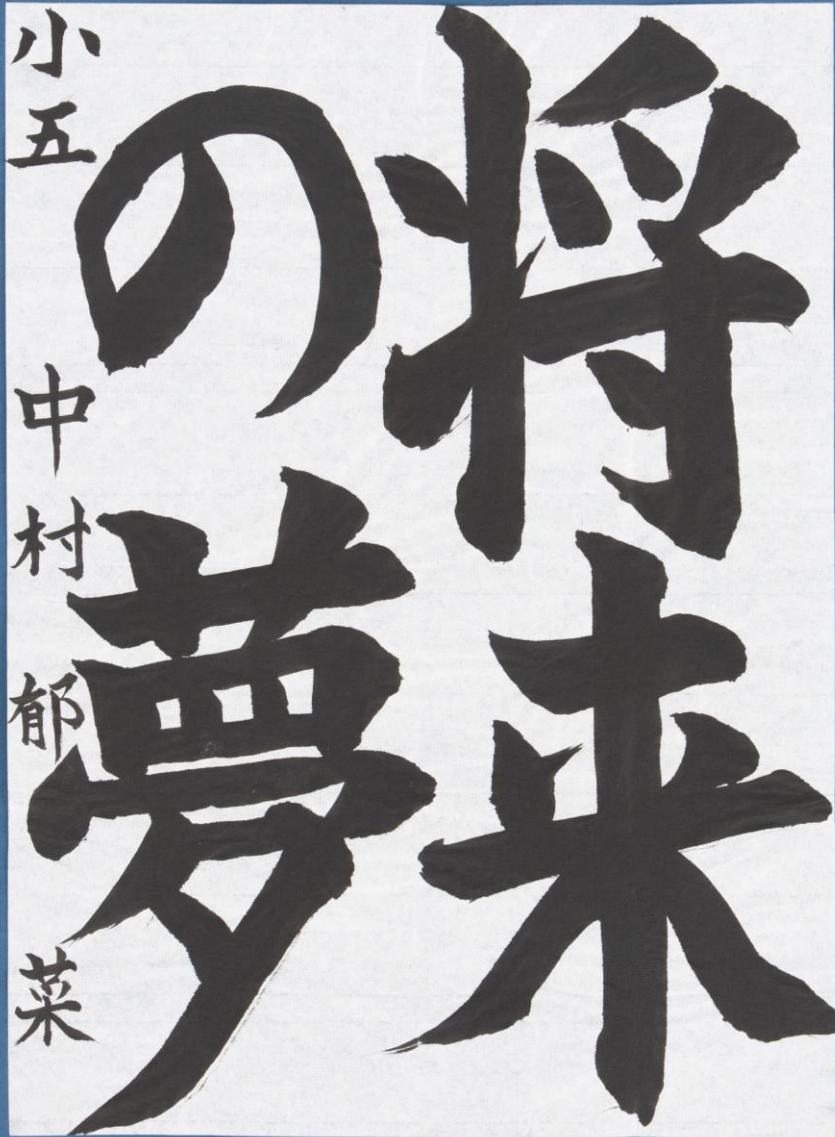 将来
の夢
小五 中村郁菜